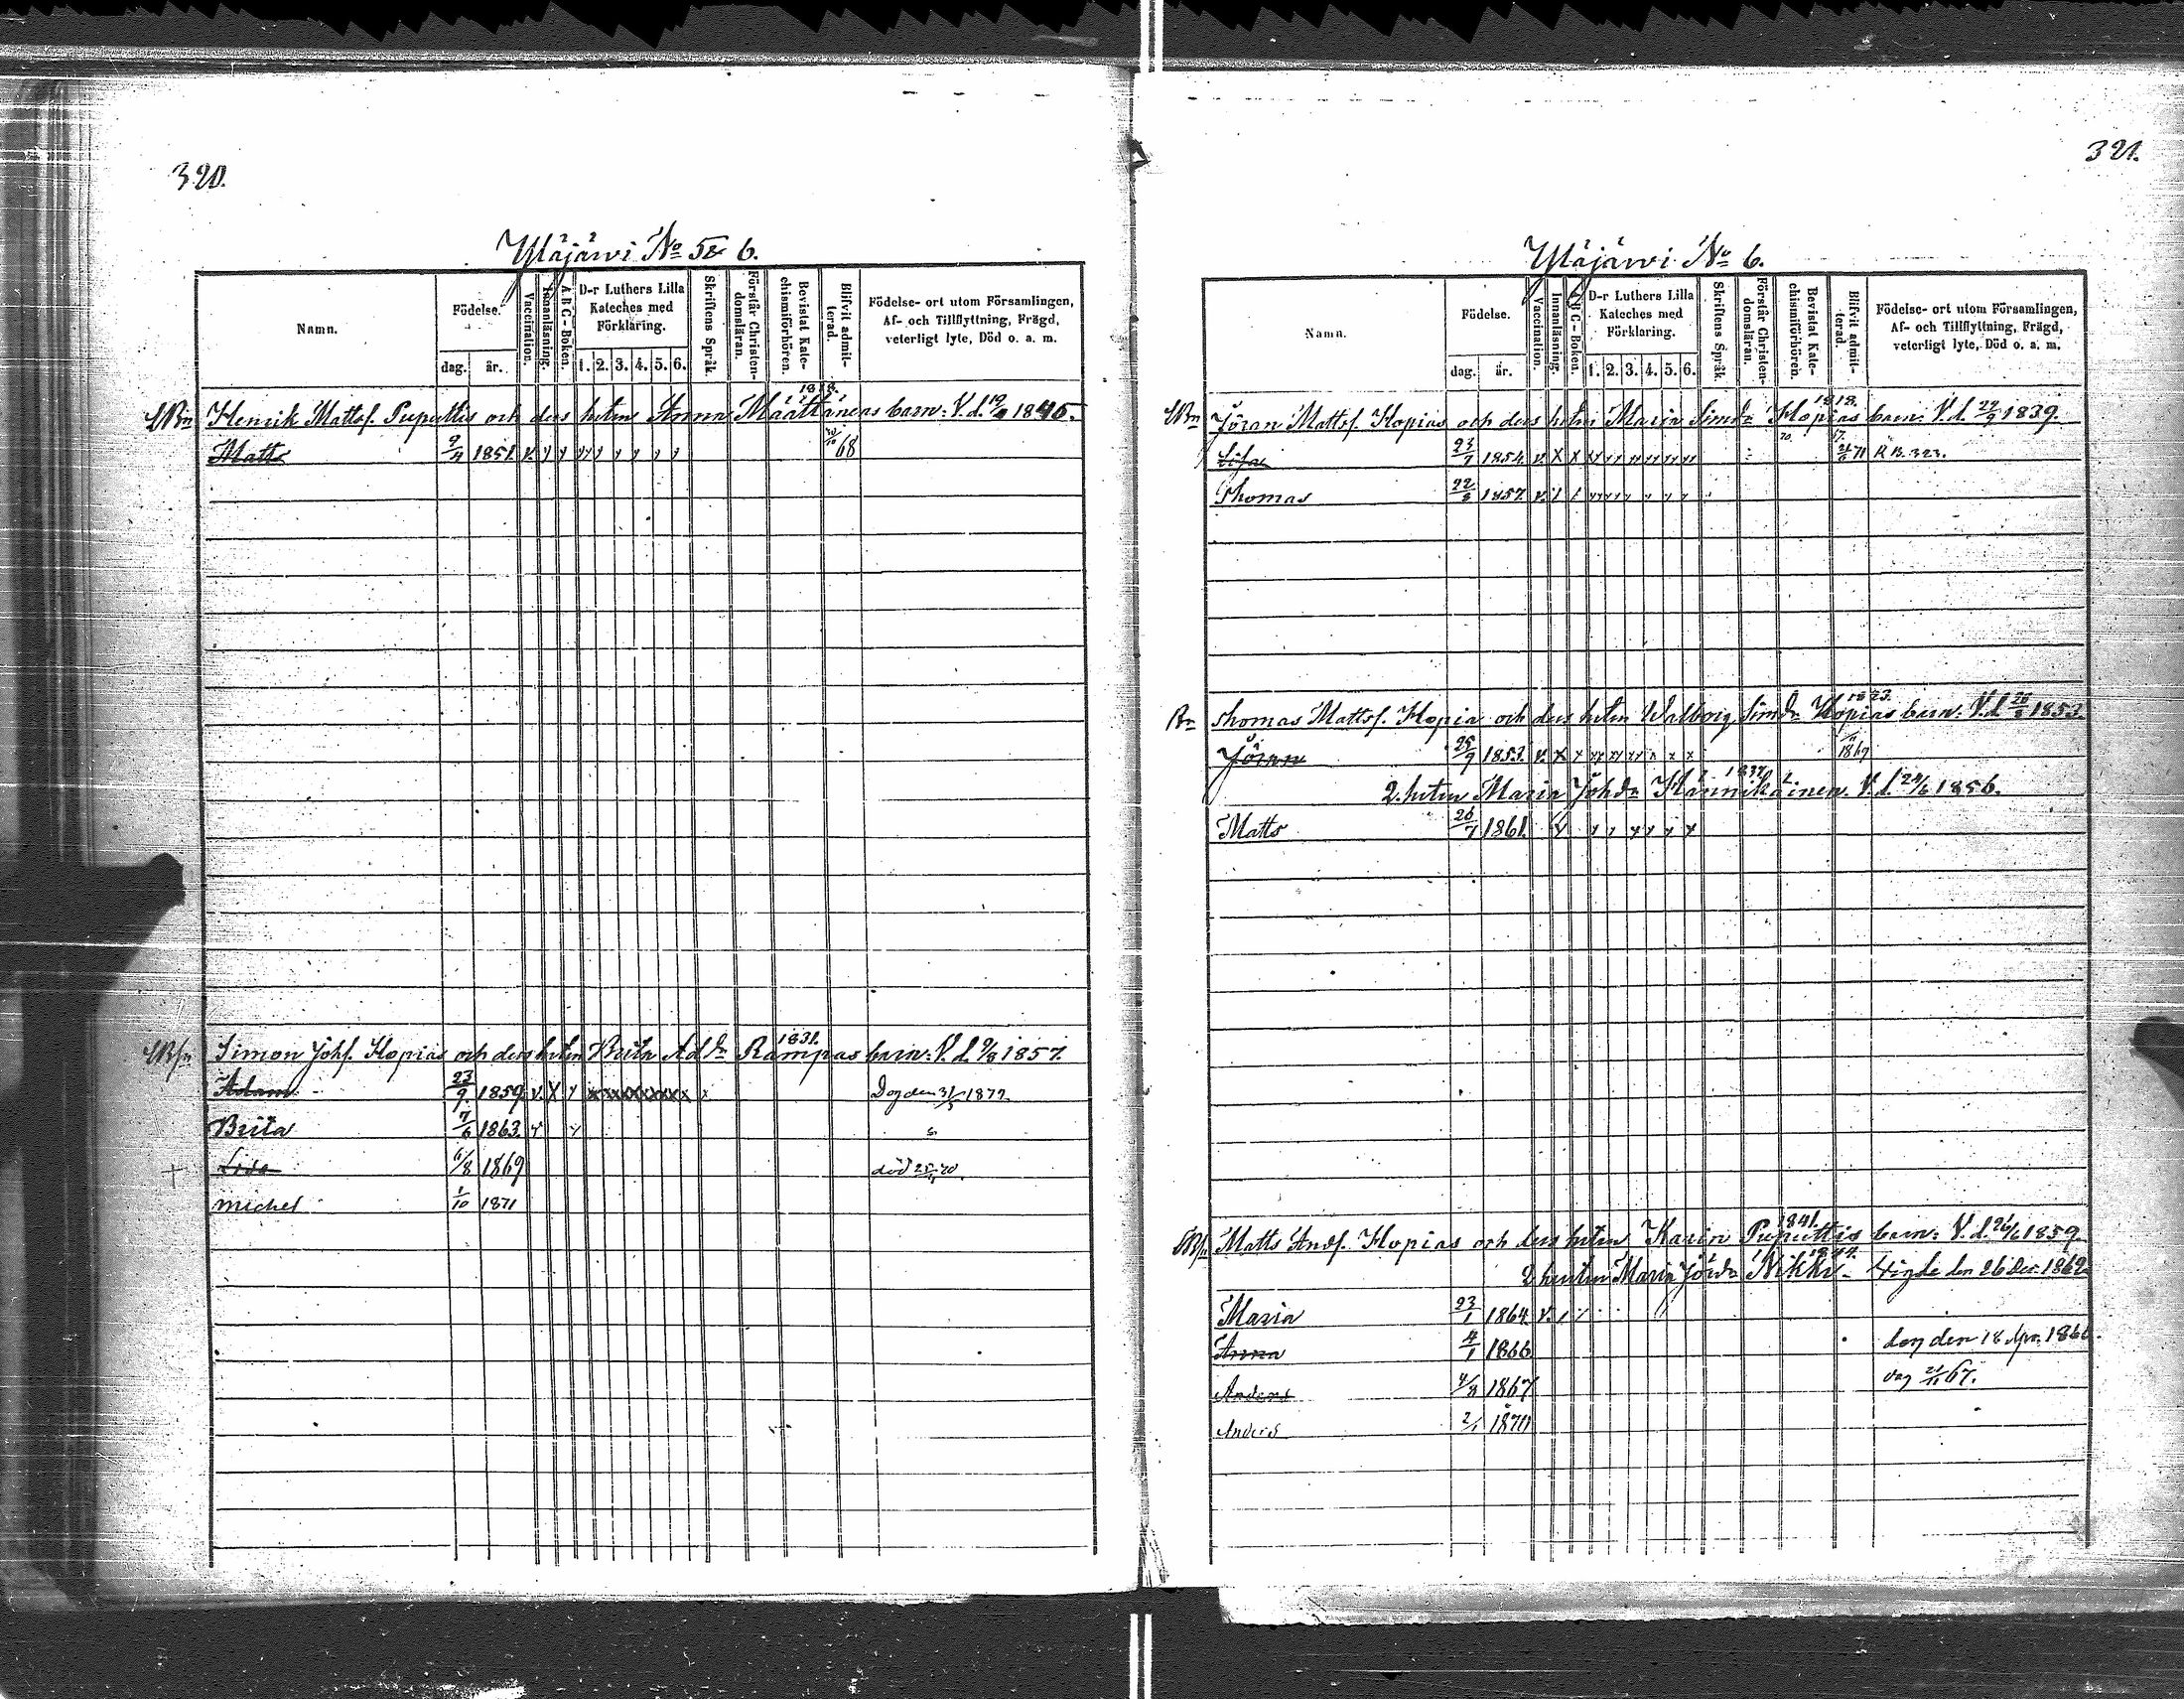 320.
Yläjärvi No 5 & 6.
Namn. Födelse. dag. år. Vaccination. Innanläsning. A B C - Boken. D-r Luthers Lilla Kateches med Förklaring. 1. 2. 3. 4. 5. 6. Skriftens Språk. Förstår Christendomsläran. Bevistat Katechismiförhören. Blifvit admitterad. Födelse- ort utom Församlingen, Af- och Tillflyttning, Frägd, veterligt lyte, Död o. a. m.
1818.
Henrik Mattsf. Puputtis och dess hustru Anna Määttänens barn: V.d. 1845.
Matts 9/4 1851. 68
1831.
Simon Johf. Hopias och dess hustru Brita Add:r Rampas barn: V.d. 9/8 1857.
Adam 23/9 1859 Dog den 31/5 1877.
Brita 7/6 1863.
Lisa 6/8 1869 död
Michel 1/10 1871
321.
Yläjärvi No 6.
Namn. Födelse. dag. år. Vaccination. Innanläsning. A B C - Boken. D-r Luthers Lilla Kateches med Förklaring. 1. 2. 3. 4. 5. 6. Skriftens Språk. Förstår Christendomsläran. Bevistat Katechismiförhören. Blifvit admitterad. Födelse- ort utom Församlingen, Af- och Tillflyttning, Frägd, veterligt lyte, Död o. a. m.
1818.
Jöran Mattsf. Hopias och dess hustru Maria Simdr Hopias barn: V.d. 29/9 1839.
Lisa 23/7 1854. 71 R B. 323.
Thomas 22/8 1857.
1823.
Thomas Mattsf. Hopia och dess hustru Walborg Simdr Hopias barn: V.d. 1853
Jöran 25/9 1853. 1869
1837.
2. hustru Maria Johdr Hännikäinen. V.d. 24/6 1856.
Matts 26/7 1861.
1841.
Matts Andf. Hopias och dess hustru Karin Puputtis barn: V.d. 26/6 1859.
2 hustru Maria Jördr Nikki Vigde den 26 Dec. 1862
Maria 23/1 1864
Anna 4/1 1866 dog den 18 Apr. 1866.
Anders 4/8 1867 dog 67.
Anders 2/1 1870